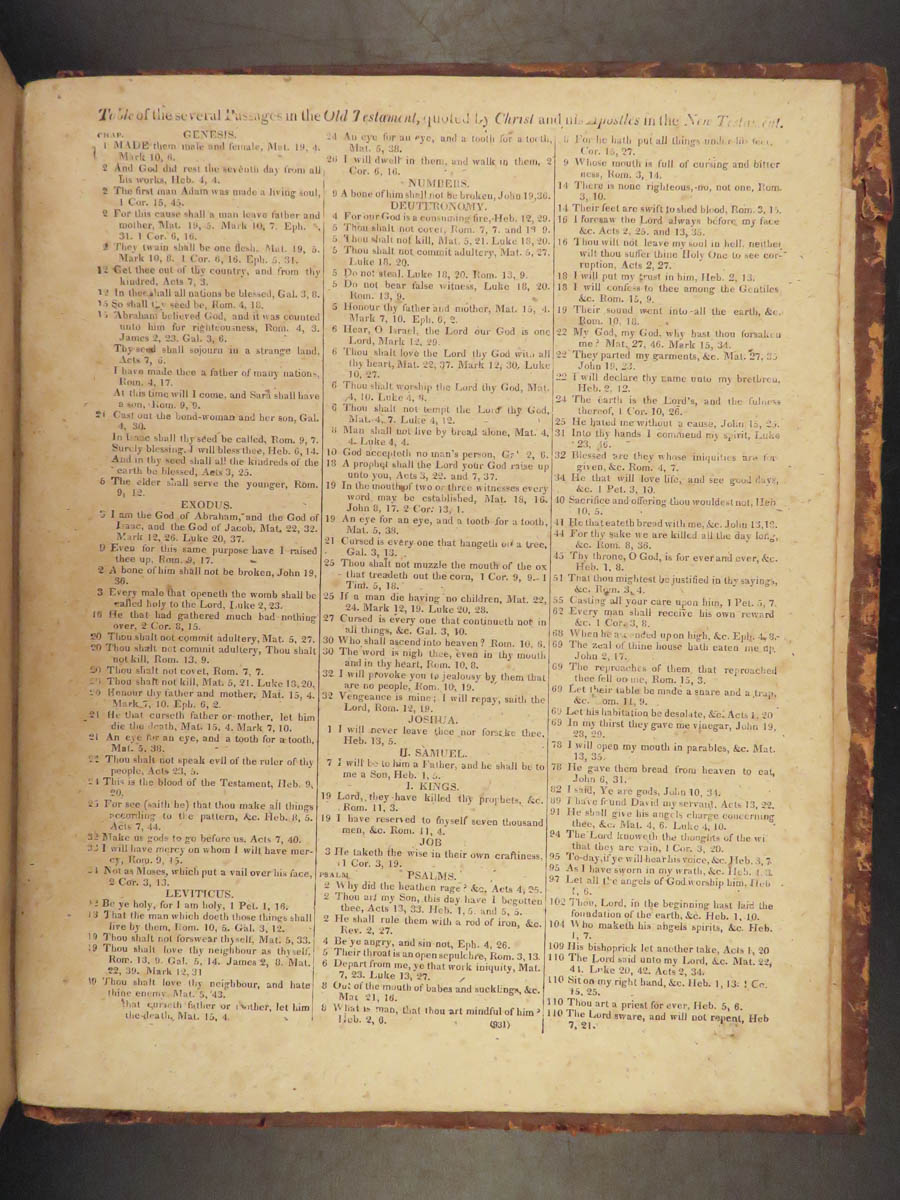 Table of the several Passages in the Old Testament, quoted by Christ and his Apostles in the New Testament.
CHAP. GENESIS.
1 MADE them male and female, Mat. 19, 4.
Mark 10, 6.
2 And God did rest the seventh day from all
his works, Heb. 4, 4.
2 The first man Adam was made a living soul,
1 Cor. 15, 45.
2 For this cause shall a man leave father and
mother, Mat. 19, 5. Mark 10, 7. Eph.
31. 1 Cor. 6, 16.
2 They twain shall be one flesh. Mat. 19, 5.
Mark 10, 8. 1 Cor. 6, 16. Eph. 5, 31.
12 Get thee out of thy country, and from thy
kindred, Acts 7, 3.
12 In thee shall all nations be blessed, Gal. 3, 8.
15 So shall thy seed be, Rom. 4, 18.
15 Abraham believed God, and it was counted
unto him for righteousness, Rom. 4, 3.
James 2, 23. Gal. 3, 6.
Thy seed shall sojourn in a strange land,
Acts 7, 6.
I have made thee a father of many nations,
Rom. 4, 17.
At this time will I come, and Sara shall have
a son, Rom. 9, 9.
21 Cast out the bond-woman and her son, Gal.
4, 30.
In Isaac shall thy seed be called, Rom. 9, 7.
Surely blessing, I will bless thee, Heb. 6, 14.
And in thy seed shall all the kindreds of the
earth be blessed, Acts 3, 25.
The elder shall serve the younger, Rom.
9, 12.
EXODUS.
I am the God of Abraham, and the God of
Isaac, and the God of Jacob, Mat. 22, 32.
Mark 12, 26. Luke 20, 37.
9 Even for this same purpose have I raised
thee up, Rom. 9, 17.
2 A bone of him shall not be broken, John 19,
36.
3 Every male that openeth the womb shall be
called holy to the Lord, Luke 2, 23.
16 He that had gathered much had nothing
over, 2 Cor. 8, 15.
20 Thou shalt not commit adultery, Mat. 5, 27.
20 Thou shalt not commit adultery, Thou shalt
not kill, Rom. 13, 9.
20 Thou shalt not covet, Rom. 7, 7.
Thou shalt not kill, Mat. 5, 21. Luke 18, 20,
20 Honour thy father and mother, Mat. 15, 4.
Mark 7, 10. Eph. 6, 2.
21 He that curseth father or mother, let him
die the death, Mat. 15, 4. Mark 7, 10.
21 An eye for an eye, and a tooth for a tooth,
Mat. 5, 38.
22 Thou shalt not speak evil of the ruler of thy
people, Acts 23, 5.
24 This is the blood of the Testament, Heb. 9,
20.
25 For see (saith he) that thou make all things
according to the pattern, &c. Heb. 8, 5.
Acts 7, 44.
32 Make us gods to go before us, Acts 7, 40.
33 I will have mercy on whom I will have mer-
cy, Rom. 9, 15.
34 Not as Moses, which put a vail over his face,
2 Cor. 3, 13.
LEVITICUS.
Be ye holy, for I am holy, 1 Pet. 1, 16.
18 That the man which doeth those things shall
live by them, Rom. 10, 5. Gal. 3, 12.
19 Thou shalt not forswear thyself, Mat. 5, 33.
19 Thou shalt love thy neighbour as thyself,
Rom. 13, 9. Gal. 5, 14. James 2, 8. Mat.
22, 39. Mark 12, 31
19 Thou shalt love thy neighbour, and hate
thine enemy, Mat. 5, 43.
that curseth father or mother, let him
the death, Mat. 15, 4.
24 An eye for an eye, and a tooth for a tooth,
Mat. 5, 38.
26 I will dwell in them, and walk in them, 2
Cor. 6, 16.
NUMBERS.
9 A bone of him shall not be broken, John 19, 36.
DEUTERONOMY.
4 For our God is a consuming fire, Heb. 12, 29.
5 Thou shalt not covet, Rom. 7, 7. and 13 9.
5 Thou shalt not kill, Mat. 5, 21. Luke 18, 20.
5 Thou shalt not commit adultery, Mat. 5, 27.
Luke 18, 20.
5 Do not steal, Luke 18, 20. Rom. 13, 9.
5 Do not bear false witness, Luke 18, 20.
Rom. 13, 9.
5 Honour thy father and mother, Mat. 15, 4.
Mark 7, 10. Eph. 6, 2.
6 Hear, O Israel, the Lord our God is one
Lord, Mark 12, 29.
6 Thou shalt love the Lord thy God with all
thy heart, Mat. 22, 37. Mark 12, 30. Luke
10, 27.
6 Thou shalt worship the Lord thy God, Mat.
4, 10. Luke 4, 8.
6 Thou shalt not tempt the Lord thy God,
Mat. 4, 7. Luke 4, 12.
8 Man shall not live by bread alone, Mat. 4,
4. Luke 4, 4.
10 God accepteth no man's person, Gal 2, 6.
18 A prophet shall the Lord your God raise up
unto you, Acts 3, 22. and 7, 37.
19 In the mouth of two or three witnesses every
word may be established, Mat. 18, 16.
John 8, 17. 2 Cor. 13, 1.
19 An eye for an eye, and a tooth for a tooth,
Mat. 5, 38.
21 Cursed is every one that hangeth on a tree,
Gal. 3, 13.
25 Thou shalt not muzzle the mouth of the ox
that treadeth out the corn, 1 Cor. 9, 9. 1
Tim. 5, 18.
25 If a man die having no children, Mat. 22,
24. Mark 12, 19. Luke 20, 28.
27 Cursed is every one that continueth not in
all things, &c. Gal. 3, 10.
30 Who shall ascend into heaven? Rom. 10, 6.
30 The word is nigh thee, even in thy mouth
and in thy heart, Rom. 10, 8.
32 I will provoke you to jealousy by them that
are no people, Rom. 10, 19.
32 Vengeance is mine; I will repay, saith the
Lord, Rom. 12, 19.
JOSHUA.
1 I will never leave thee nor forsake thee,
Heb. 13, 5.
II. SAMUEL.
7 I will be to him a Father, and he shall be to
me a Son, Heb. 1, 5.
I. KINGS.
19 Lord, they have killed thy prophets, &c.
Rom. 11, 3.
19 I have reserved to myself seven thousand
men, &c. Rom. 11, 4.
JOB
3 He taketh the wise in their own craftiness,
1 Cor. 3, 19.
PSALM. PSALMS.
2 Why did the heathen rage? &c, Acts 4, 25.
2 Thou art my Son, this day have I begotten
thee, Acts 13, 33. Heb. 1, 5. and 5, 5.
2 He shall rule them with a rod of iron, &c.
Rev. 2, 27.
4 Be ye angry, and sin not, Eph. 4, 26.
5 Their throat is an open sepulchre, Rom. 3, 13.
6 Depart from me, ye that work iniquity, Mat.
7, 23. Luke 13, 27.
8 Out of the mouth of babes and sucklings, &c.
Mat 21, 16.
8 What is man, that thou art mindful of him?
Heb. 2, 6.
(931)
8 For he hath put all things under his feet,
Cor. 15, 27.
9 Whose mouth is full of cursing and bitter
ness, Rom. 3, 14.
14 There is none righteous, no, not one, Rom.
3, 10.
14 Their feet are swift to shed blood, Rom. 3, 15.
16 I foresaw the Lord always before my face
&c. Acts 2, 25. and 13, 35.
16 Thou wilt not leave my soul in hell, neither
wilt thou suffer thine Holy One to see cor-
ruption, Acts 2, 27.
18 I will put my trust in him, Heb. 2, 13.
18 I will confess to thee among the Gentiles
&c. Rom. 15, 9.
19 Their sound went into all the earth, &c.
Rom. 10, 18.
22 My God, my God, why hast thou forsaken
me? Mat. 27, 46. Mark 15, 34.
22 They parted my garments, &c. Mat. 27, 35
John 19, 23.
22 I will declare thy name unto my brethren,
Heb. 2, 12.
24 The earth is the Lord's, and the fulness
thereof, 1 Cor. 10, 26.
25 He hated me without a cause, John 15, 25.
31 Into thy hands I commend my spirit, Luke
23, 46.
32 Blessed are they whose iniquities are for
given, &c. Rom. 4, 7.
34 He that will love life, and see good days,
&c. 1 Pet. 3, 10.
40 Sacrifice and offering thou wouldest not, Heb
10, 5.
41 He that eateth bread with me, &c. John 13, 18.
44 For thy sake we are killed all the day long,
&c. Rom. 8, 36.
45 Thy throne, O God, is for ever and ever, &c.
Heb. 1, 8.
51 That thou mightest be justified in thy sayings,
&c. Rom. 3, 4.
55 Casting all your care upon him, 1 Pet. 5, 7.
62 Every man shall receive his own reward
&c. 1 Cor. 3, 8.
68 When he ascended upon high, &c. Eph. 4, 8.
69 The zeal of thine house hath eaten me up,
John 2, 17.
69 The reproaches of them that reproached
thee fell on me, Rom. 15, 3.
69 Let their table be made a snare and a trap,
&c. Rom. 11, 9.
69 Let his habitation be desolate, &c. Acts 1, 20
69 In my thirst they gave me vinegar, John 19,
28, 29.
78 I will open my mouth in parables, &c. Mat.
13, 35.
78 He gave them bread from heaven to eat,
John 6, 31.
82 I said, Ye are gods, John 10, 34.
89 I have found David my servant, Acts 13, 22.
91 He shall give his angels charge concerning
thee, &c. Mat. 4, 6. Luke 4, 10.
94 The Lord knoweth the thoughts of the wi
that they are vain, 1 Cor. 3, 20.
95 To-day, if ye will hear his voice, &c. Heb. 3, 7
95 As I have sworn in my wrath, &c. Heb. 4, 3.
97 Let all the angels of God worship him, Heb
1, 6.
102 Thou, Lord, in the beginning hast laid the
foundation of the earth, &c. Heb. 1, 10.
104 Who maketh his angels spirits, &c. Heb.
1, 7.
109 His bishoprick let another take, Acts 1, 20
110 The Lord said unto my Lord, &c. Mat. 22,
44. Luke 20, 42. Acts 2, 34.
110 Sit on my right hand, &c. Heb. 1, 13. 1 Co.
15, 25.
110 Thou art a priest for ever, Heb. 5, 6.
110 The Lord sware, and will not repent, Heb
7, 21.